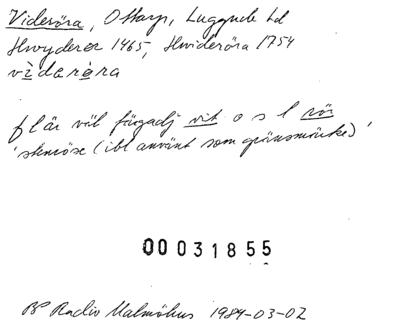 Videröra, Ottarp, Luggude hd
Hwyderør 1465, Hwideröra 1754
vìdərøra
f l är väl färgadj vit o s l rör
'stenröse (ibl använt som gränsmärke)'
00031855
BP Radio Malmöhus 1984-03-02